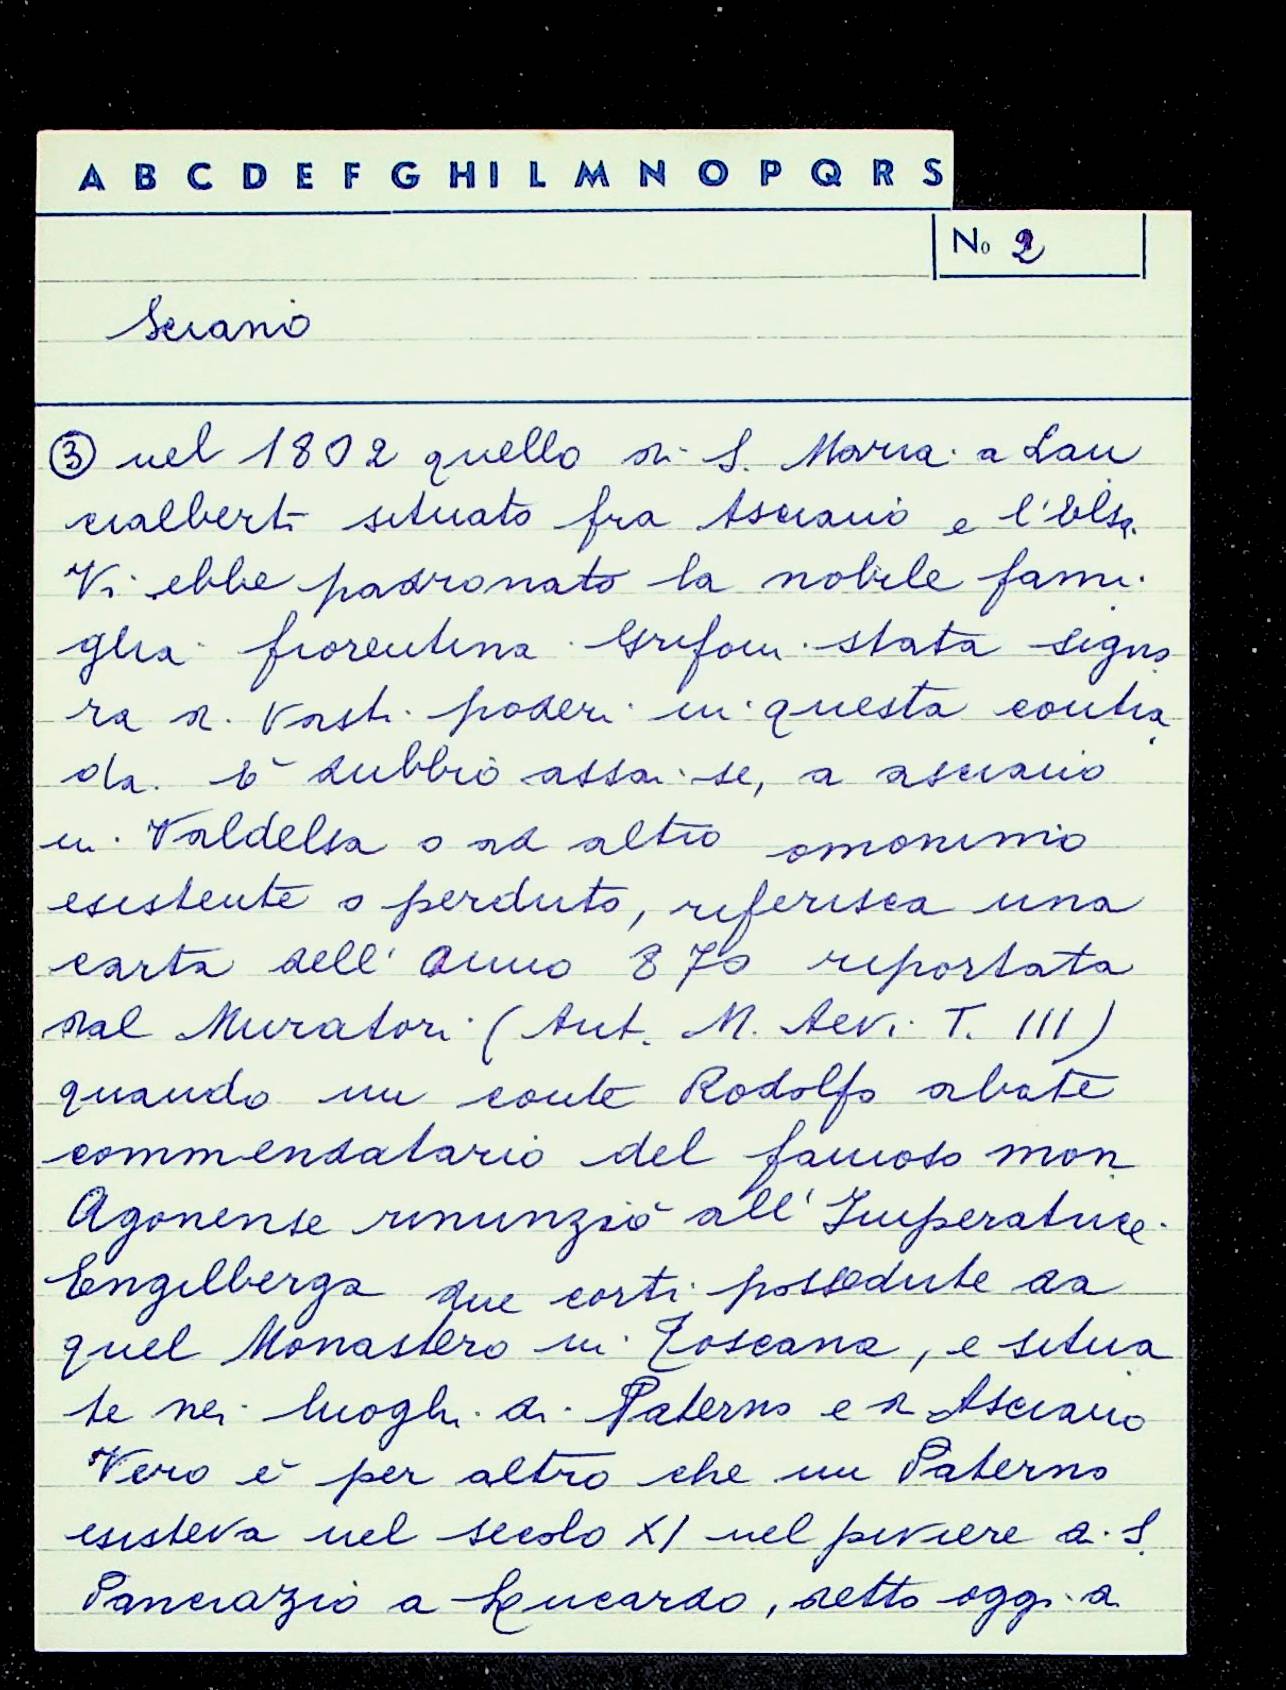 A B C D E F G H I L M N O P Q R S
No 2
Sciano
③ nel 1802 quello di S. Maria a Lan
cialberti situato fra Asciano e l'Elsa.
Vi ebbe padronato la nobile fami
glia fiorentina Grifoni stata signo
ra di vasti poderi in questa contra
da. È dubbio assai se, a asciano
in Valdelsa o ad altro omonimo
esistente o perduto, riferisca una
carta dell'anno 870 riportata
dal Muratori (Ant. M. Aevi T. III)
quando un conte Rodolfo abate
commendatario del famoso mon
Agonense rinunziò all'Imperatrice
Engilberga due corti possedute da
quel Monastero in Toscana, e situa
te nei luoghi di Paterno e di Asciano
Vero è per altro che un Paterno
esisteva nel secolo XI nel piviere di S.
Pancrazio a Lucardo, detto oggi di